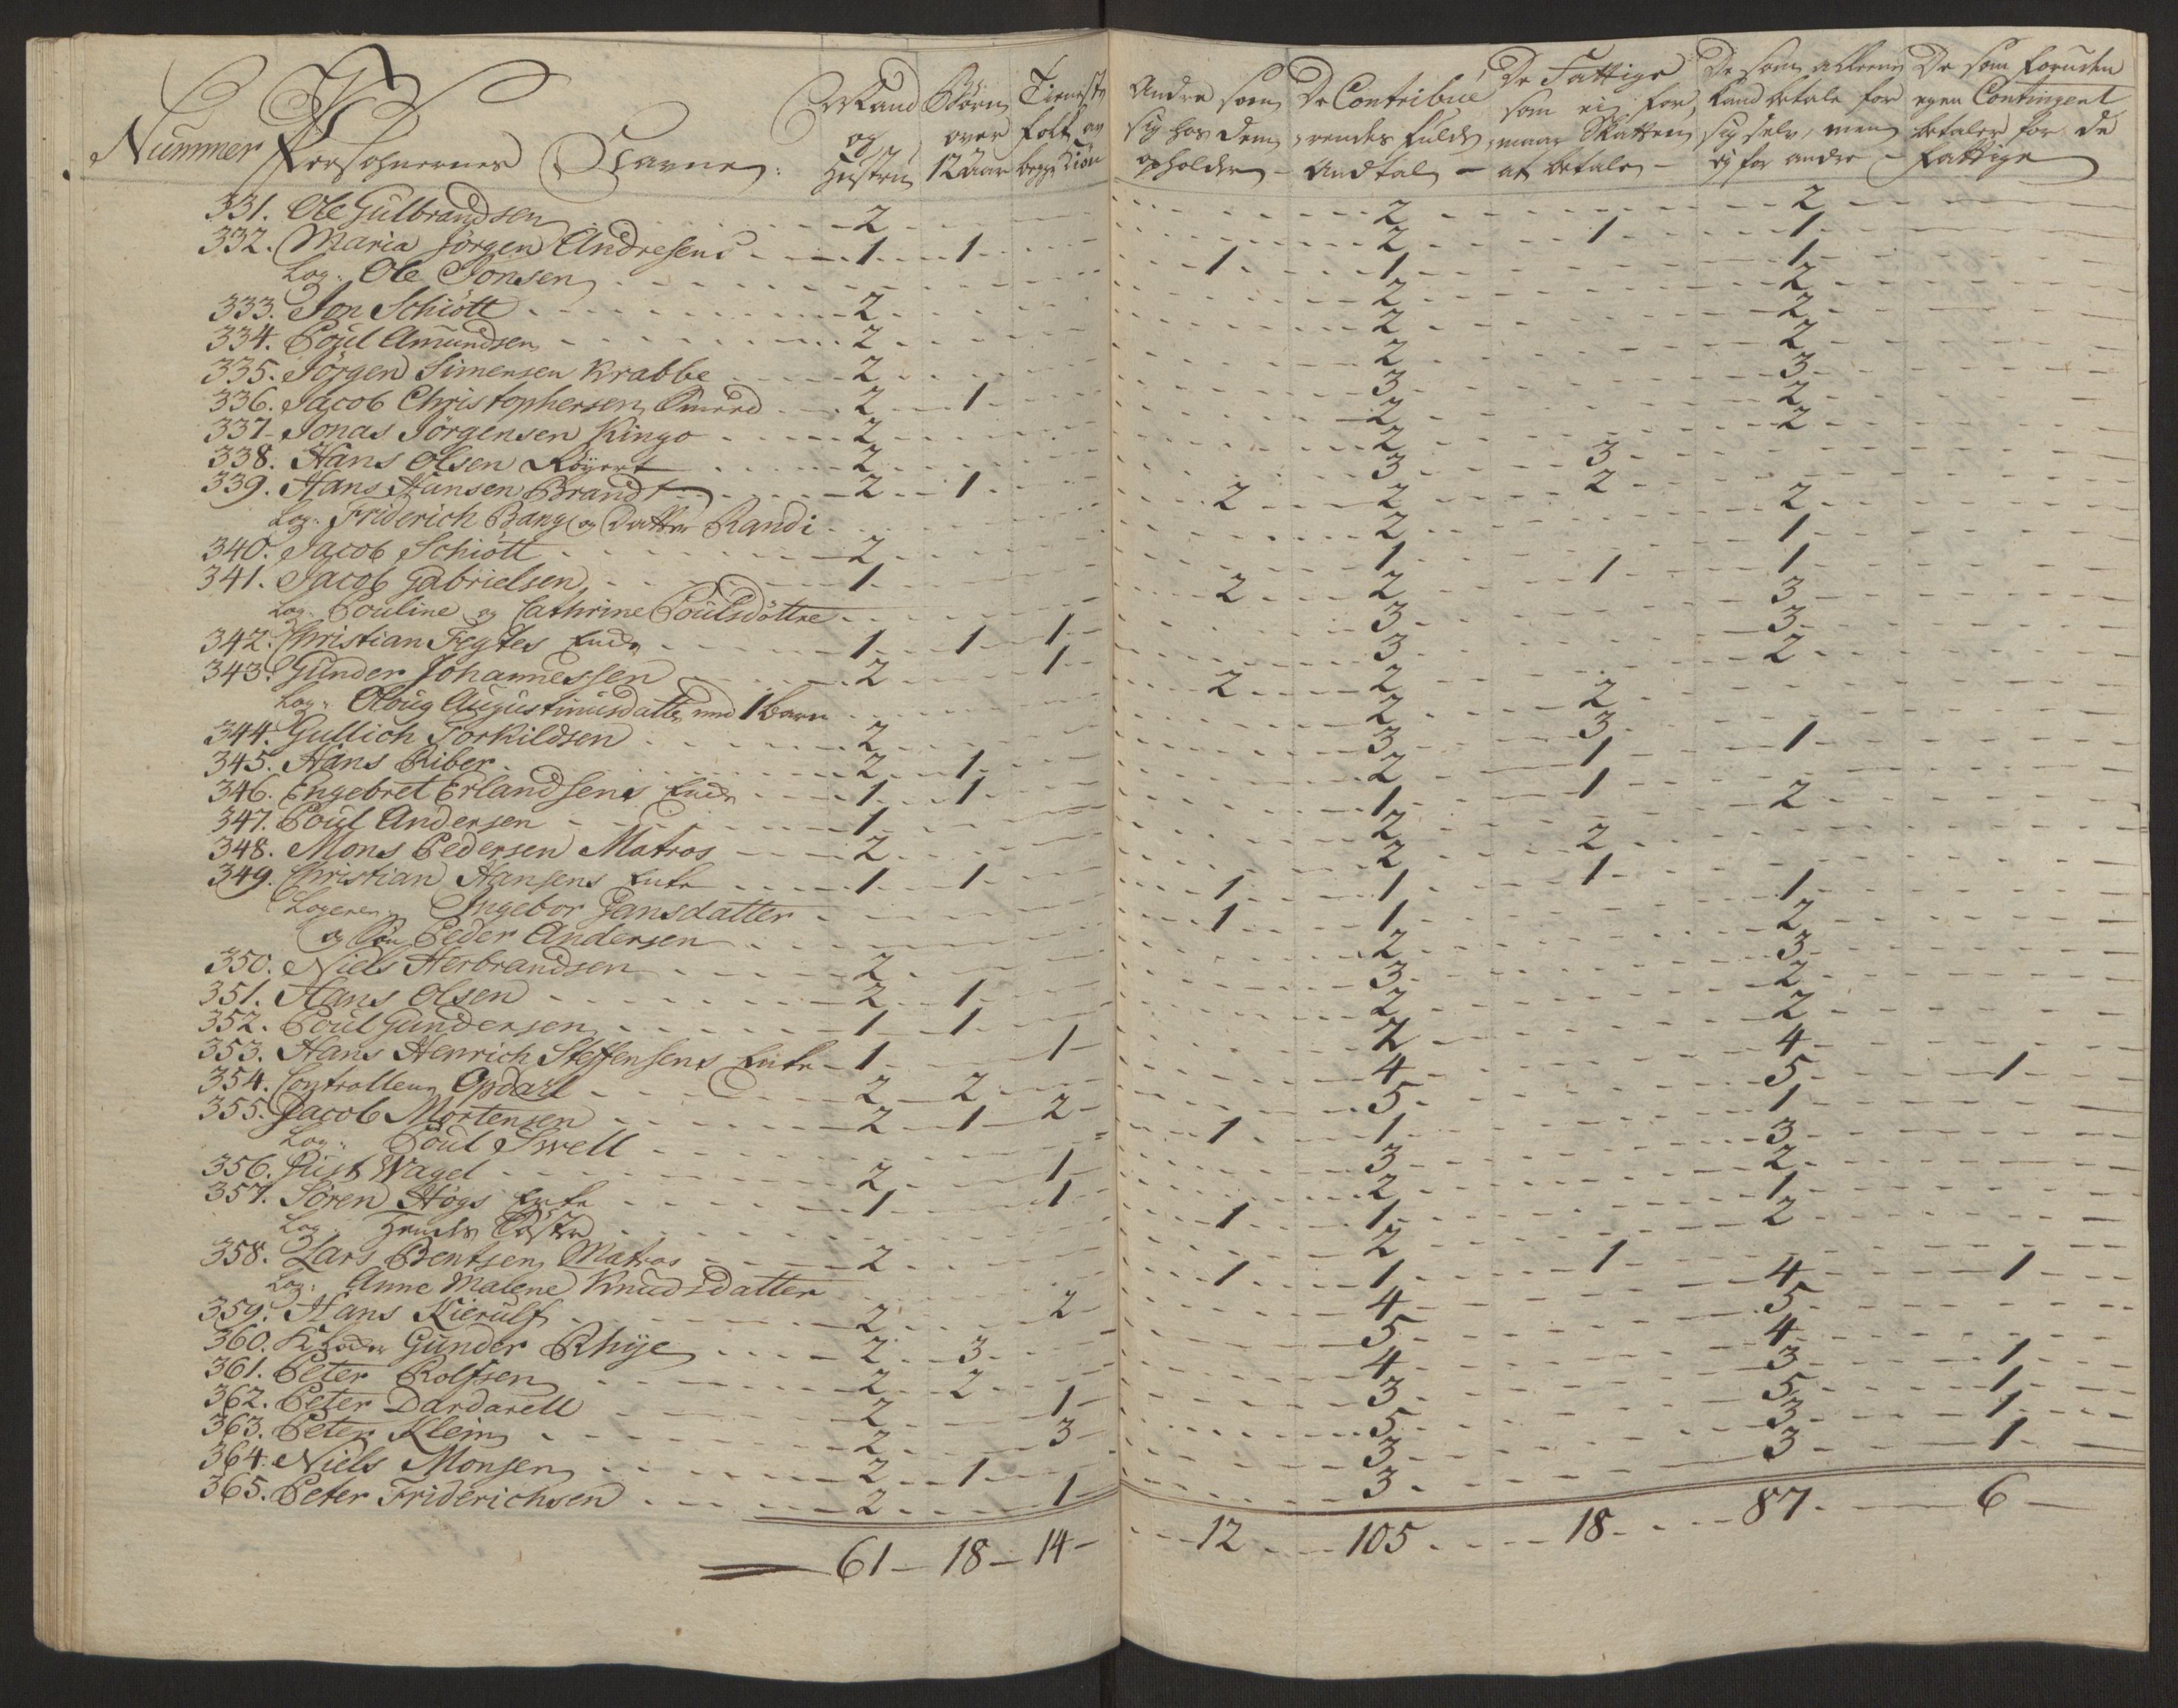 Nummer Persohnernes Navne. Mand og Hustru Børn over 12 Aar Tieneste folk af begge Kiøn Andre som sig hos dem opholder De Contribuerendes fulde Andtal De Fattige som ej formaar Skatten at betale De som alleene kand betale for sig selv, men ej for andre De som foruden egen Contingent betaler for de Fattige
331. Ole Gulbrandsen 2 2 2
332. Maria Jörgen Andresens 1 1 2 1 1
Log. Ole Jonsen 1 1 1
333. Jon Schiött 2 2 2
334. Poul Amundsen 2 2 2
335. Jörgen Simensen Krabbe 2 2 2
336. Jacob Christophersen 2 1 3 3
337. Jonas Jörgensen Kingo 2 2 2
338. Hans Olsen Röyert 2 2 2
339. Hans Hansen Brandt 2 1 3 3
Log. Friderich Bang og Datter Randi 2 2 2
340. Jacob Schiött 2 2 2
341. Jacob Gabrielsen 1 1 1
Log. Pouline og Cathrine Poulsdöttre 2 2 1 1
342. Christian Fegtes Enke 1 1 1 3 3
343. Gunder Johannessen 2 1 3 3
Log. Oloug Augustinusdatter med 1 barn 2 2 2
344. Gullich Torkildsen 2 2 2
345. Hans Riber 2 1 3 3
346. Engebret Erlandsens Enke 1 1 2 1 1
347. Poul Andersen 1 1 1
348. Mons Pedersen Matros 2 2 2
349. Christian Hansens Enke 1 1 2 2
Logerer Ingebor Jansdatter 1 1 1
og Sön Peder Andersen 1 1 1
350. Niels Herbrandsen 2 2 2
351. Hans Olsen 2 1 3 3
352. Poul Gundersen 1 1 2 2
353. Hans Henrich Steffensens Enke 1 1 2 2
354. Controlleur Opdahl 2 2 4 4
355. Jacob Mortensen 2 1 2 5 5 1
Log. Poul Swell 1 1 1
356. Just Wagel 2 1 3 3
357. Sören Högs Enke 1 1 2 2
Log. Hendes Söster 1 1 1
358. Lars Bentsen Matros 2 2 2
Log. Anne Malene Knudsdatter 1 1 1
359. Hans Kierulf 2 2 4 4 1
360. Gunder Rhye 2 3 5 5
361. Peter Rolfsen 2 2 4 4
362. Peter Dardarell 2 1 3 3 1
363. Peter Klein 2 3 5 5 1
364. Niels Monsen 2 1 3 3 1
365. Peter Friderichsen 2 1 3 3 1
61 18 14 12 105 18 87 6